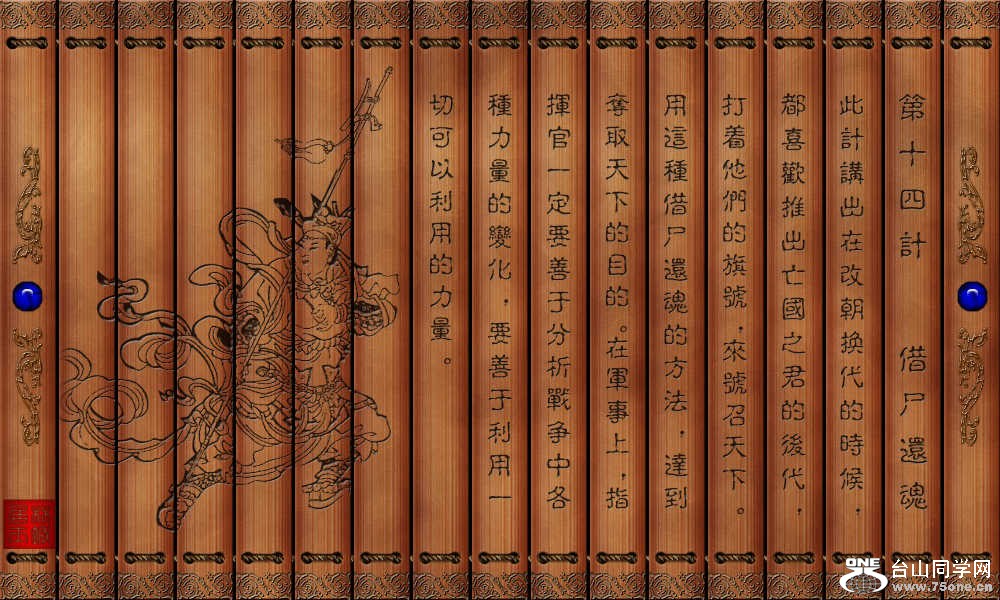 第十四計　借尸還魂
此計講出在改朝換代的時候，
都喜歡推出亡國之君的後代，
打着他們的旗號，來號召天下。
用這種借尸還魂的方法，達到
奪取天下的目的。在軍事上，指
揮官一定要善于分析戰争中各
種力量的變化，要善于利用一
切可以利用的力量。
ONE
台山同学网
www.75one.cn